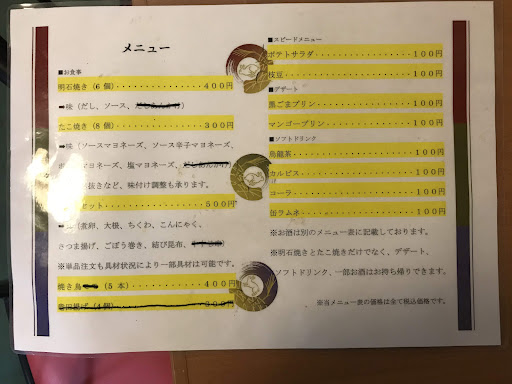 メニュー
■お食事
明石焼き (6個)・・・・・・・・・・・・・・400円
➡味 (だし、ソース、
たこ焼き (8個)・・・・・・・・・・・・・・300円
➡味 (ソースマヨネーズ、ソース辛子マヨネーズ、
マヨネーズ、塩マヨネーズ、
抜きなど、味付け調整も承ります。
セット・・・・・・・・・・・・・・500円
(煮卵、大根、ちくわ、こんにゃく、
さつま揚げ、ごぼう巻き、結び昆布、
※単品注文も具材状況により一部具材は可能です。
焼き鳥 (5本)・・・・・・・・・・・・・・400円
(4個)・・・・・・・・・・・・・・300円
■スピードメニュー
ポテトサラダ・・・・・・・・・・・・・・100円
枝豆・・・・・・・・・・・・・・・・・・100円
■デザート
黒ごまプリン・・・・・・・・・・・・・・100円
マンゴープリン・・・・・・・・・・・・・100円
■ソフトドリンク
烏龍茶・・・・・・・・・・・・・・・・・100円
カルピス・・・・・・・・・・・・・・・・100円
コーラ・・・・・・・・・・・・・・・・・100円
缶ラムネ・・・・・・・・・・・・・・・・100円
※お酒は別のメニュー表に記載しております。
※明石焼きとたこ焼きだけでなく、デザート、
ソフトドリンク、一部お酒はお持ち帰りできます。
※当メニュー表の価格は全て税込価格です。